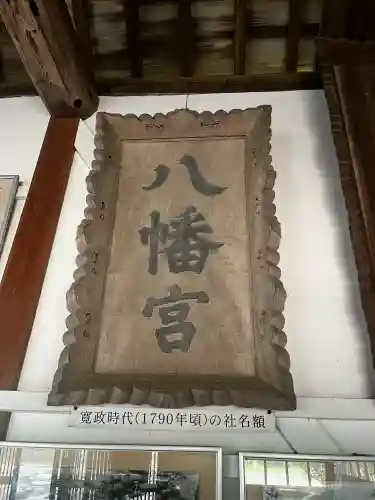 八幡宮
寛政時代(1790年頃)の社名額